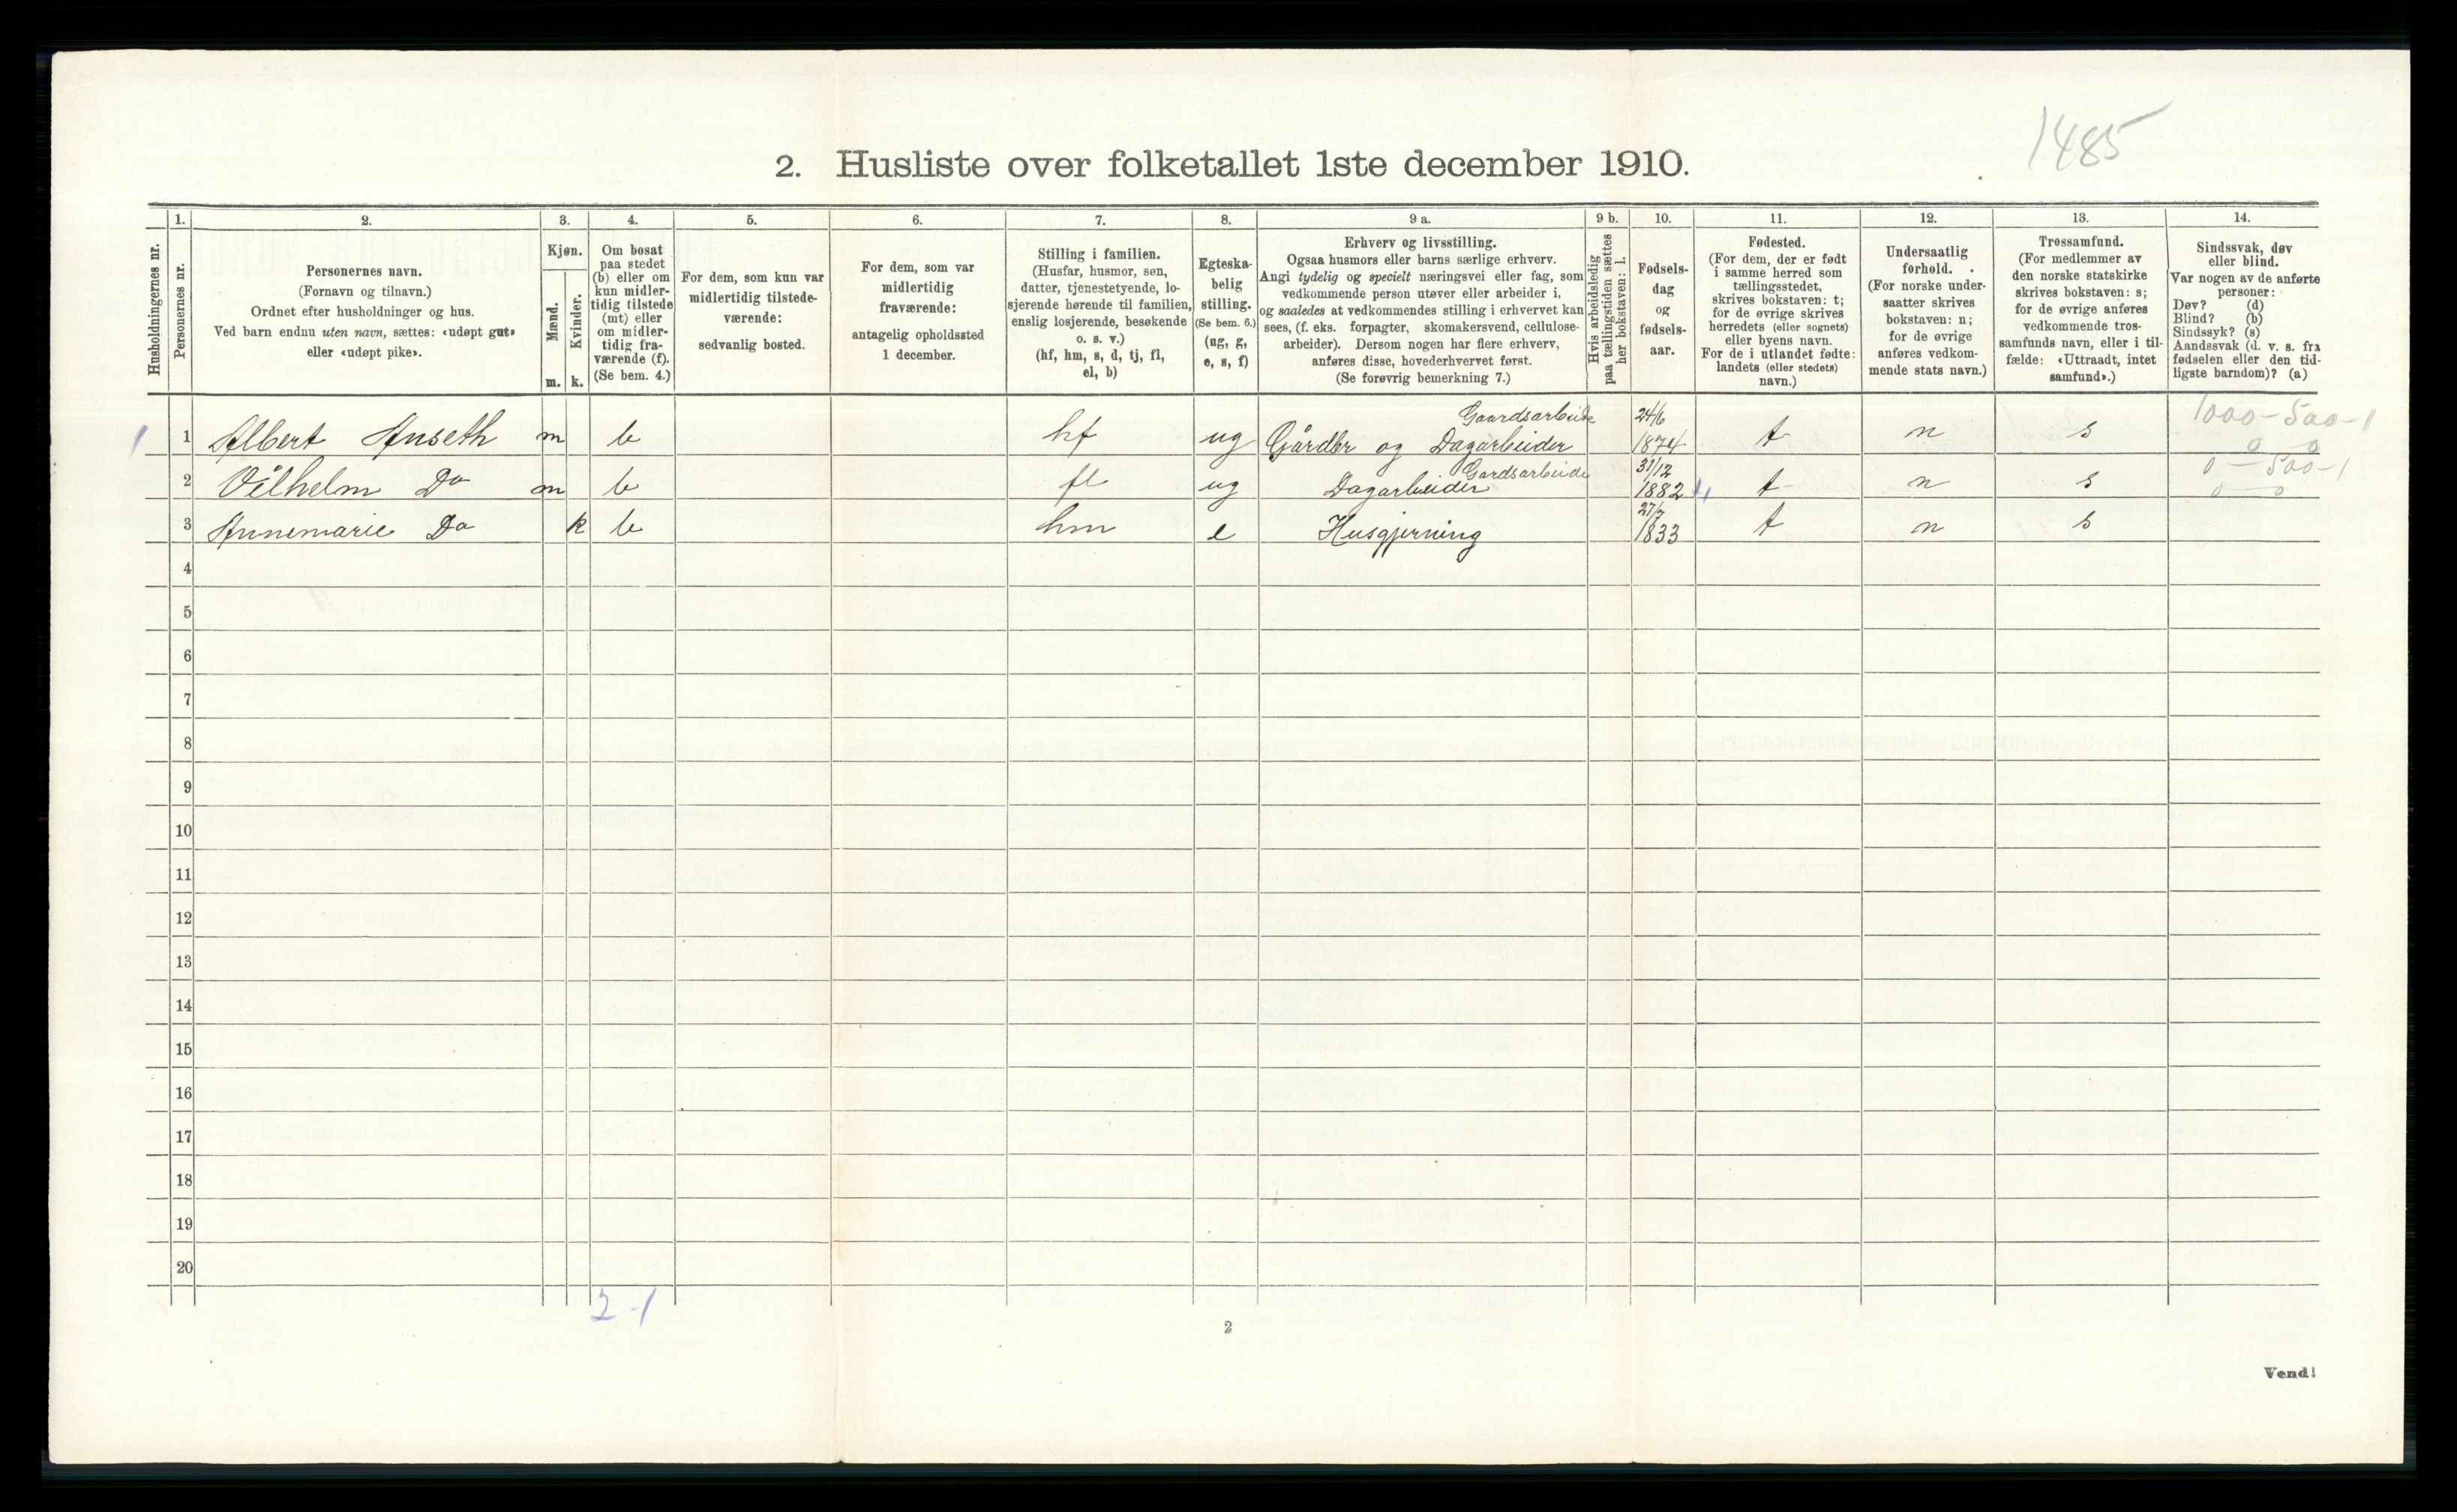 1485
2. Husliste over folketallet 1ste december 1910.
Husholdningernes nr.
1.
Personernes nr.
2.
Personernes navn.
(Fornavn og tilnavn.)
Ordnet efter husholdninger og hus.
Ved barn endnu uten navn, sættes: «udøpt gut»
eller «udøpt pike».
3.
Kjøn.
Mænd.
m.
Kvinder.
k.
4.
Om bosat
paa stedet
(b) eller om
kun midler-
tidig tilstede
(mt) eller
om midler-
tidig fra-
værende (f).
(Se bem. 4.)
5.
For dem, som kun var
midlertidig tilstede-
værende:
sedvanlig bosted.
6.
For dem, som var
midlertidig
fraværende:
antagelig opholdssted
1 december.
7.
Stilling i familien.
(Husfar, husmor, søn,
datter, tjenestetyende, lo-
sjerende hørende til familien,
enslig losjerende, besøkende
o. s. v.)
(hf, hm, s, d, tj, fl,
el, b)
8.
Egteska-
belig
stilling.
(Se bem. 6.)
(ug, g,
e, s, f)
9 a.
Erhverv og livsstilling.
Ogsaa husmors eller barns særlige erhverv.
Angi tydelig og specielt næringsvei eller fag, som
vedkommende person utøver eller arbeider i,
og saaledes at vedkommendes stilling i erhvervet kan
sees, (f. eks. forpagter, skomakersvend, cellulose-
arbeider). Dersom nogen har flere erhverv,
anføres disse, hovederhvervet først.
(Se forøvrig bemerkning 7.)
9 b.
Hvis arbeidsledig
paa tællingstiden sættes
her bokstaven: l.
10.
Fødsels-
dag
og
fødsels-
aar.
11.
Fødested.
(For dem, der er født
i samme herred som
tællingsstedet,
skrives bokstaven: t;
for de øvrige skrives
herredets (eller sognets)
eller byens navn.
For de i utlandet fødte:
landets (eller stedets)
navn.)
12.
Undersaatlig
forhold.
(For norske under-
saatter skrives
bokstaven: n;
for de øvrige
anføres vedkom-
mende stats navn.)
13.
Trossamfund.
(For medlemmer av
den norske statskirke
skrives bokstaven: s;
for de øvrige anføres
vedkommende tros-
samfunds navn, eller i til-
fælde: «Uttraadt, intet
samfund».)
14.
Sindssvak, døv
eller blind.
Var nogen av de anførte
personer:
Døv? (d)
Blind? (b)
Sindssyk? (s)
Aandssvak (d. v. s. fra
fødselen eller den tid-
ligste barndom)? (a)
Gaardsarbeide 24/6 1000-500-1
1 1 Albert Anseth m b hf ug Gårdbr og Dagarbeider 1874 t n s 0 0
Gardsarbeide 31/12 0-500-1
2 Vilhelm Do m b fl ug Dagarbeider 1882 t n s 0 0
27/7
3 Annemarie Do k b hm e Husgjerning 1833 t n s
4
5
6
7
8
9
10
11
12
13
14
15
16
17
18
19
20
2-1
2
Vend!